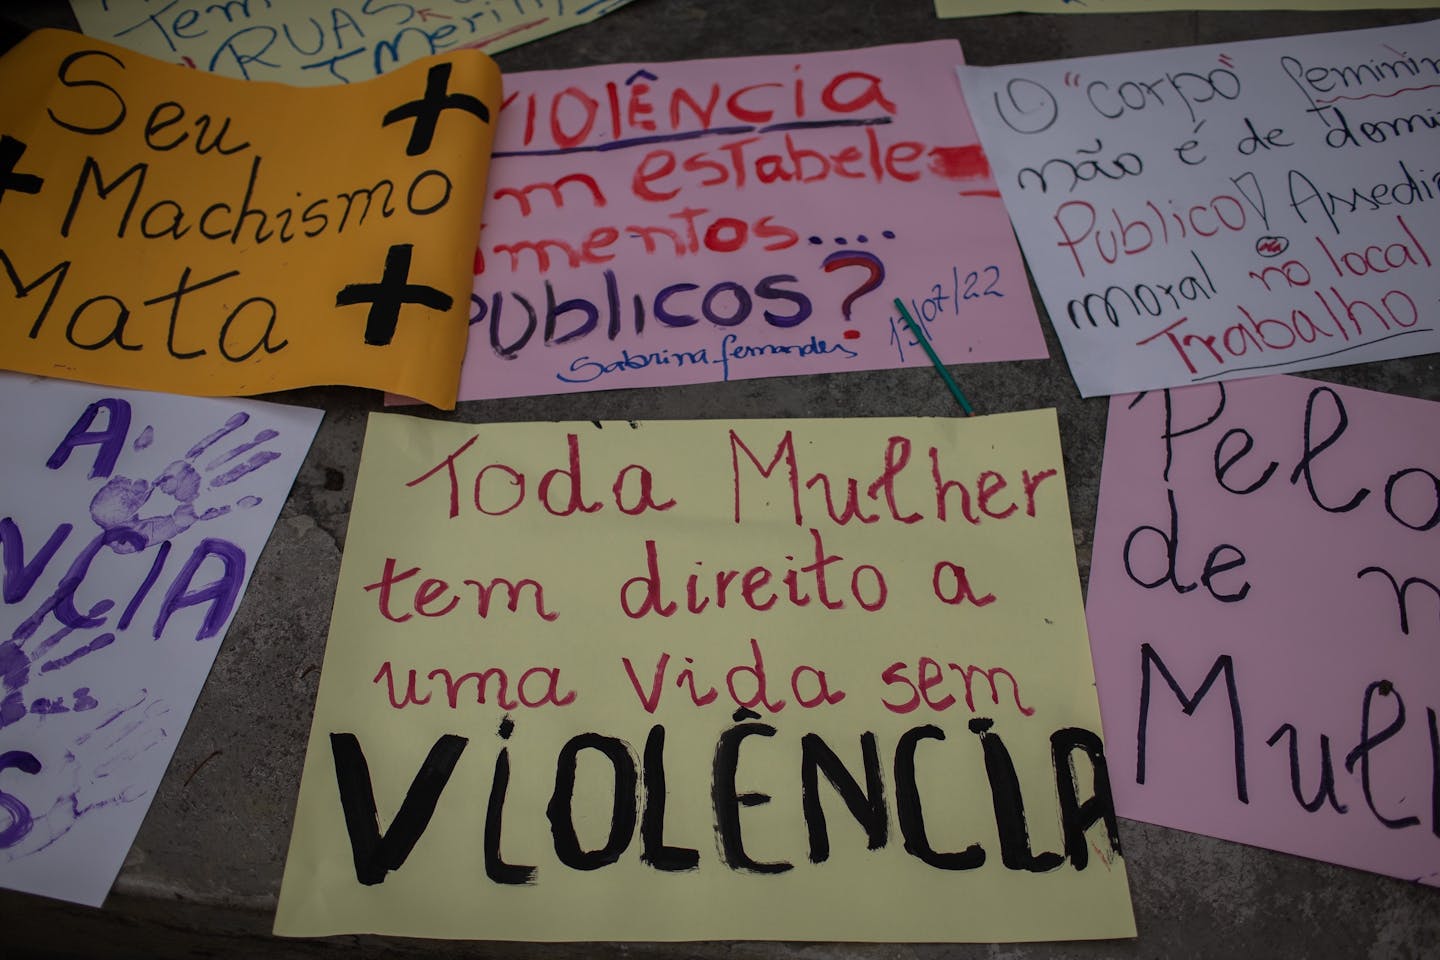 Tem
RUAS
Seu
Machismo
Mata
VIOLÊNCIA
em estabele
cimentos....
PÚblicos?
Sabrina fernandes 13/07/22
O "corpo"
não é de
Público! Assedi
moral no local
Trabalho
A
NCIA
S
Toda Mulher
tem direito a
uma vida sem
VIOLÊNCIA
Pelo
de
Mul